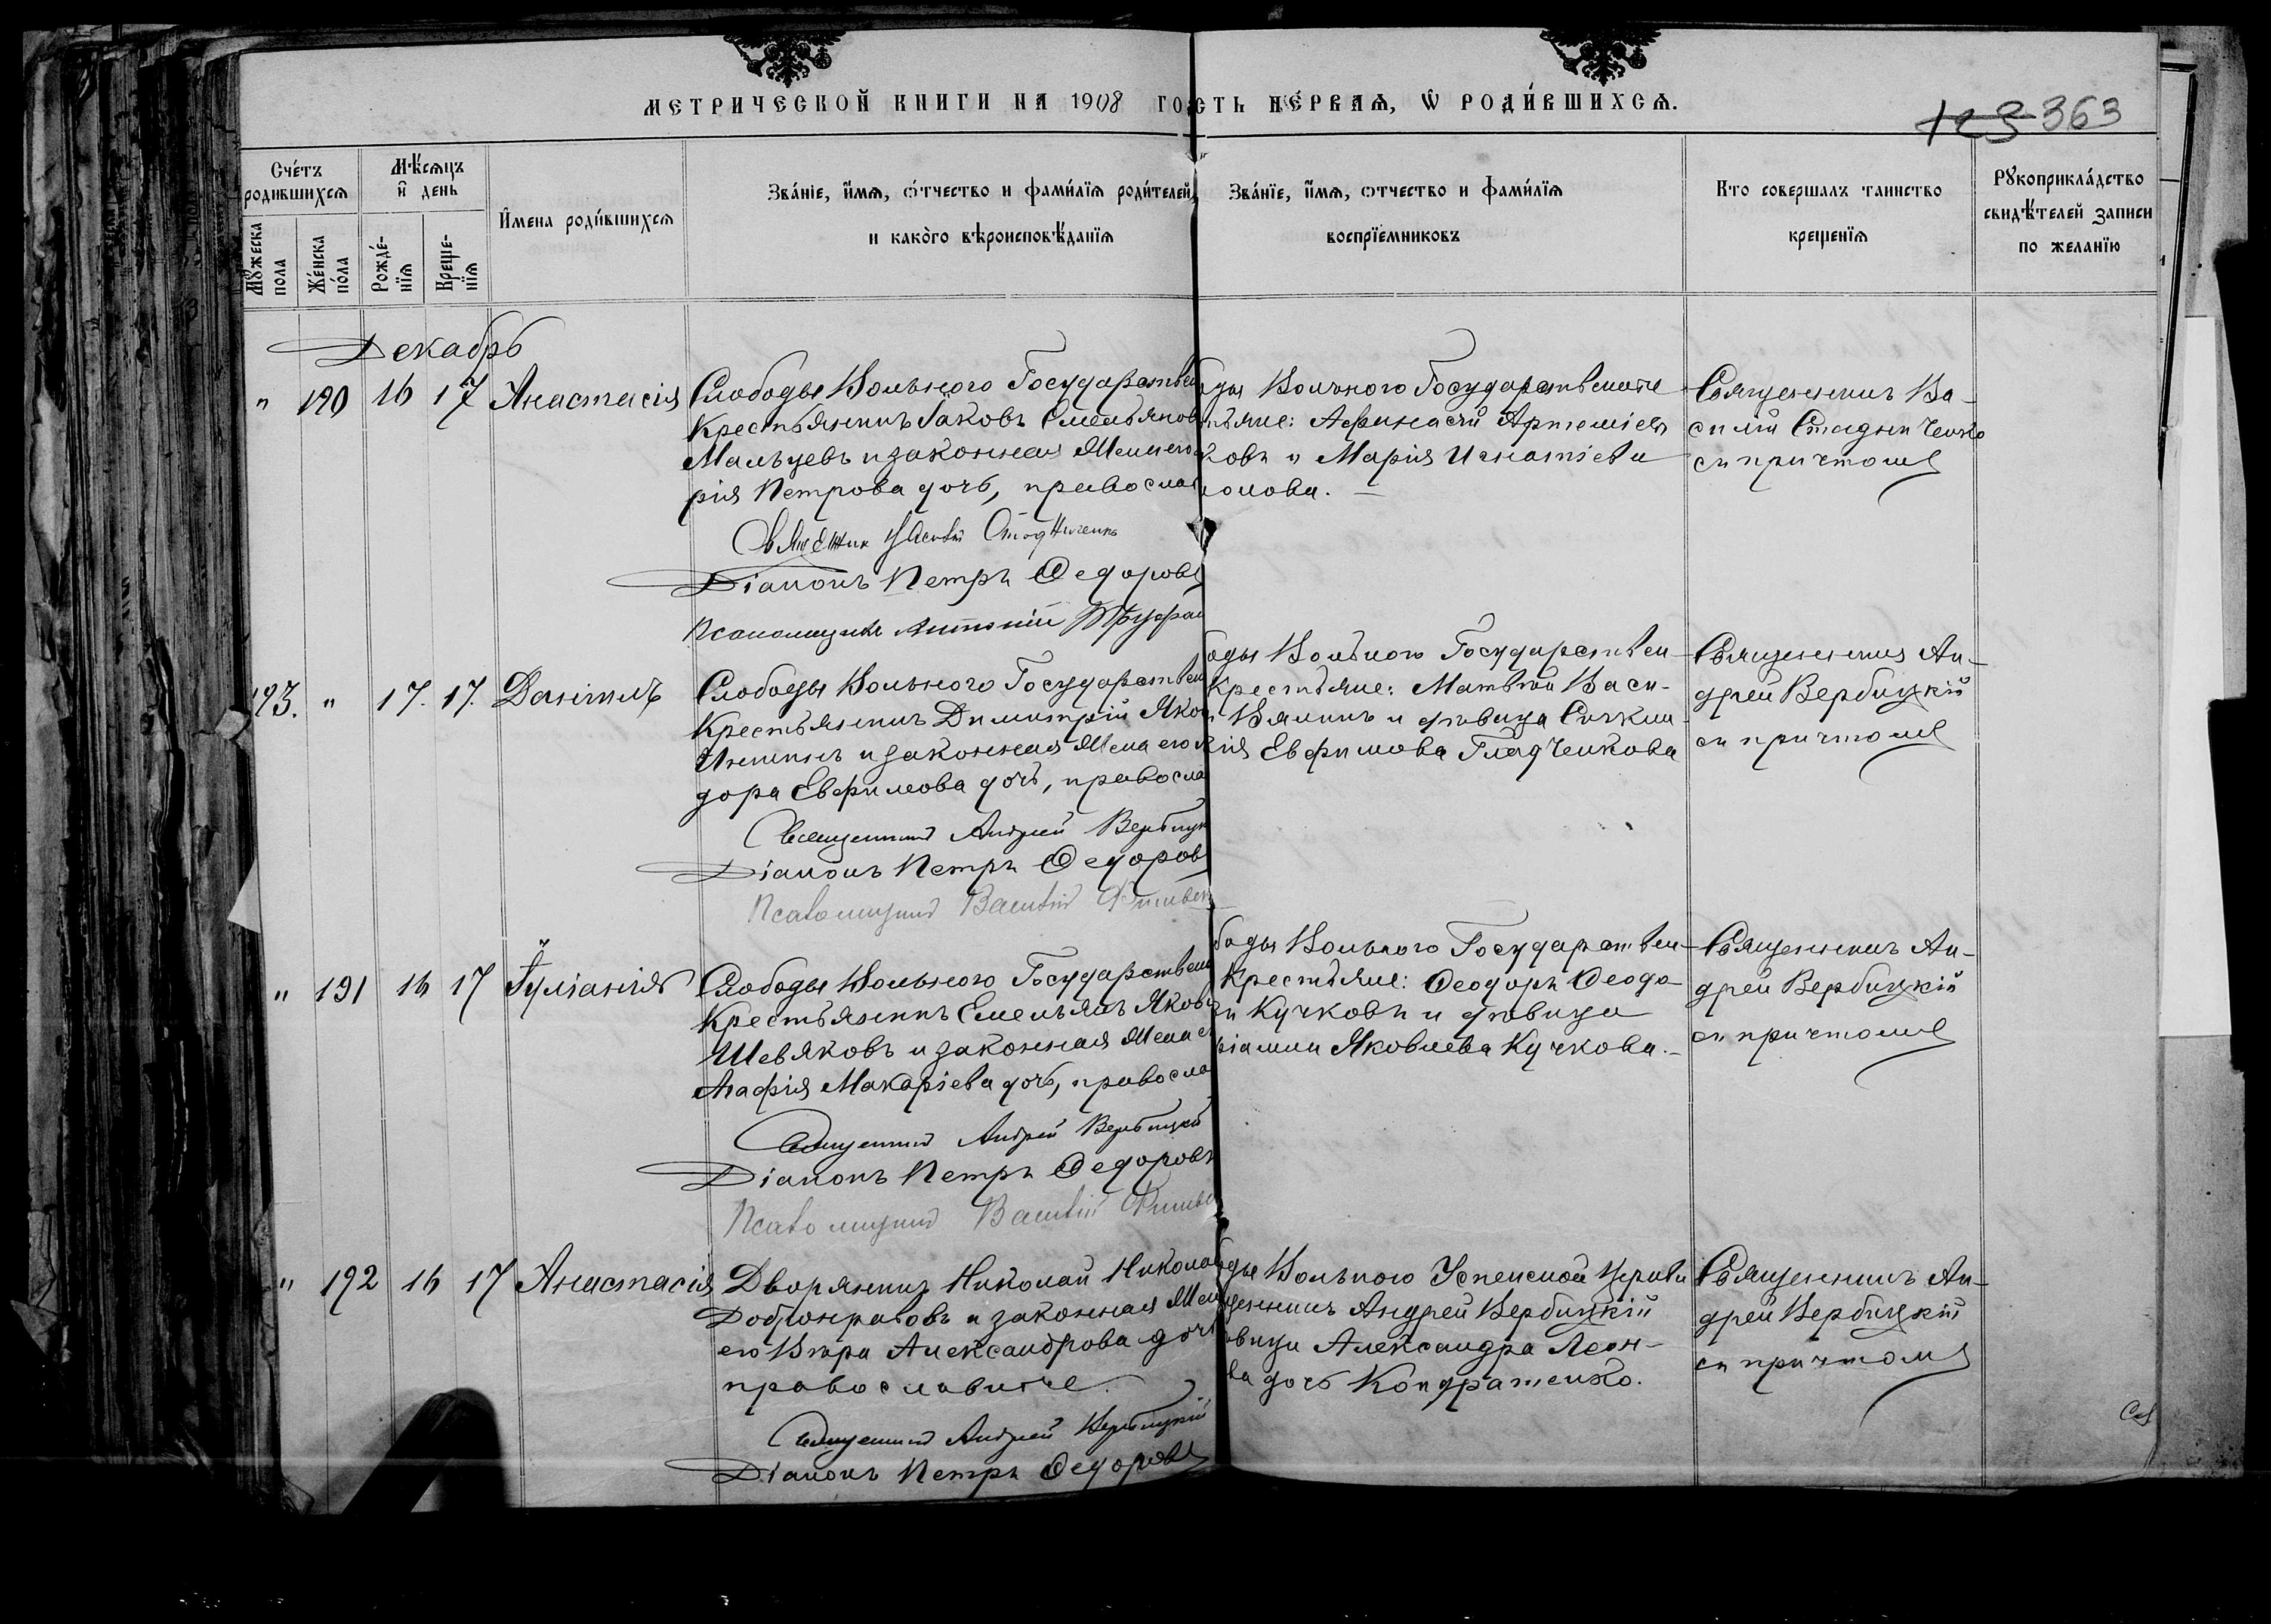 МЕТРИЧЕСКОЙ КНИГИ НА 1908 ГО СТЬ ПЕ́РВАѦ, Ѡ РОДИ́ВШИХСѦ.
123 363
Сче́тъ родившихсѧ
Мꙋ́жеска пола
Же́нска по́ла
Мѣ́сѧцъ и день
Рожде́-нїѧ
Креще-нїѧ
И҆мена роди́вшихсѧ
Зва́нїе, и҆́мѧ, ѻ҆́тчество и фами́лїѧ роди́телей,
и како́го вѣроисповѣ́данїѧ
Зва́нїе, и҆́мѧ, ѻтчество и фами́лїѧ
воспрїе́мниковъ
Кто совершалъ таинство
крещенїѧ
Рꙋкоприкла́дство
свидѣ́телей записи
по желанїю
Декабрь
" 190 16 17 Анастасія
Слободы Вольного Государствен
крестьянинъ Іаковъ Емельянов
Мальцевъ и законная жена его
рія Петрова дочь, правосла
Священник Василій Стадниченко
Діаконъ Петръ Ѳедоровъ
Псаломщикъ Антоній Труфан
ды Вольного Государственные
тьяне: Афанасій Артеміев
ковъ и Марія Игнатіева
онова.
Священникъ Ва-
силій Стадниченко
съ причтомъ
193. " 17. 17. Даніилъ
Слободы Вольного Государствен
крестьянинъ Димитрій Яков
и законная жена его
дора Евфимова дочь, правосла
Священникъ Андрей Вербицк
Діаконъ Петръ Ѳедоровъ
Псаломщикъ Василій
оды Вольного Государствен-
крестьяне: Матвѣй Васи-
и дѣвица
кія Евфимова Гладченкова
Священникъ Ан-
дрей Вербицкій
съ причтомъ
" 191 16 17 Іуліанія
Слободы Вольного Государствен
крестьянинъ Емельянъ Яковл
Шевяковъ и законная жена е
Агафія Макаріева дочь, правосла
Священникъ Андрей Вербицкій
Діаконъ Петръ Ѳедоровъ
Псаломщикъ Василій
боды Вольного Государствен-
крестьяне: Ѳеодоръ Ѳеодо-
Кучковъ и дѣвица
Яковлева Кучкова.-
Священникъ Ан-
дрей Вербицкій
съ причтомъ
" 192 16 17 Анастасія
Дворянинъ Николай Никола
Добронравовъ и законная жен
его Вѣра Александрова дочь
православные.
Священникъ Андрей Вербицкій
Діаконъ Петръ Ѳедоровъ
ды Вольного Успенской Церкви
щенникъ Андрей Вербицкій
вица Александра Леон-
ва дочь Кондратенко.
Священникъ Ан-
дрей Вербицкій
съ причтомъ